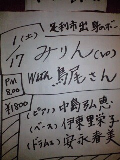 足利市出身のボー
1(土)
17 みりん(vo)
PM 8:00 with 鳥尾さん
¥1800
(ピアノ)中島弘恵
(ベース)伊東里栄子
(ドラムス)安永春美